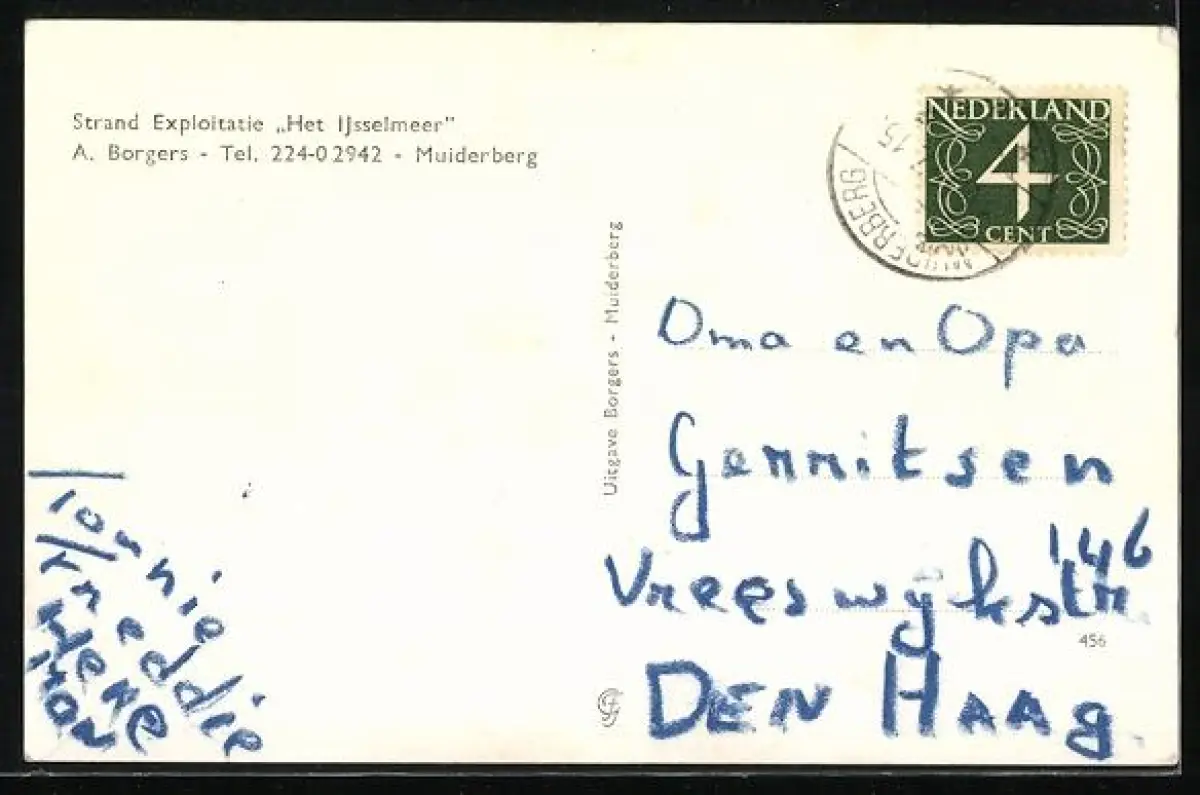 Strand Exploitatie „Het IJsselmeer"
A. Borgers - Tel. 224-02942 - Muiderberg
NEDERLAND
4
CENT
MUIDERBERG
15
Uitgave Borgers - Muiderberg
Oma en Opa
Gerritsen
Vreeswijkstr 146
456
DEN HAAg.
Freddie